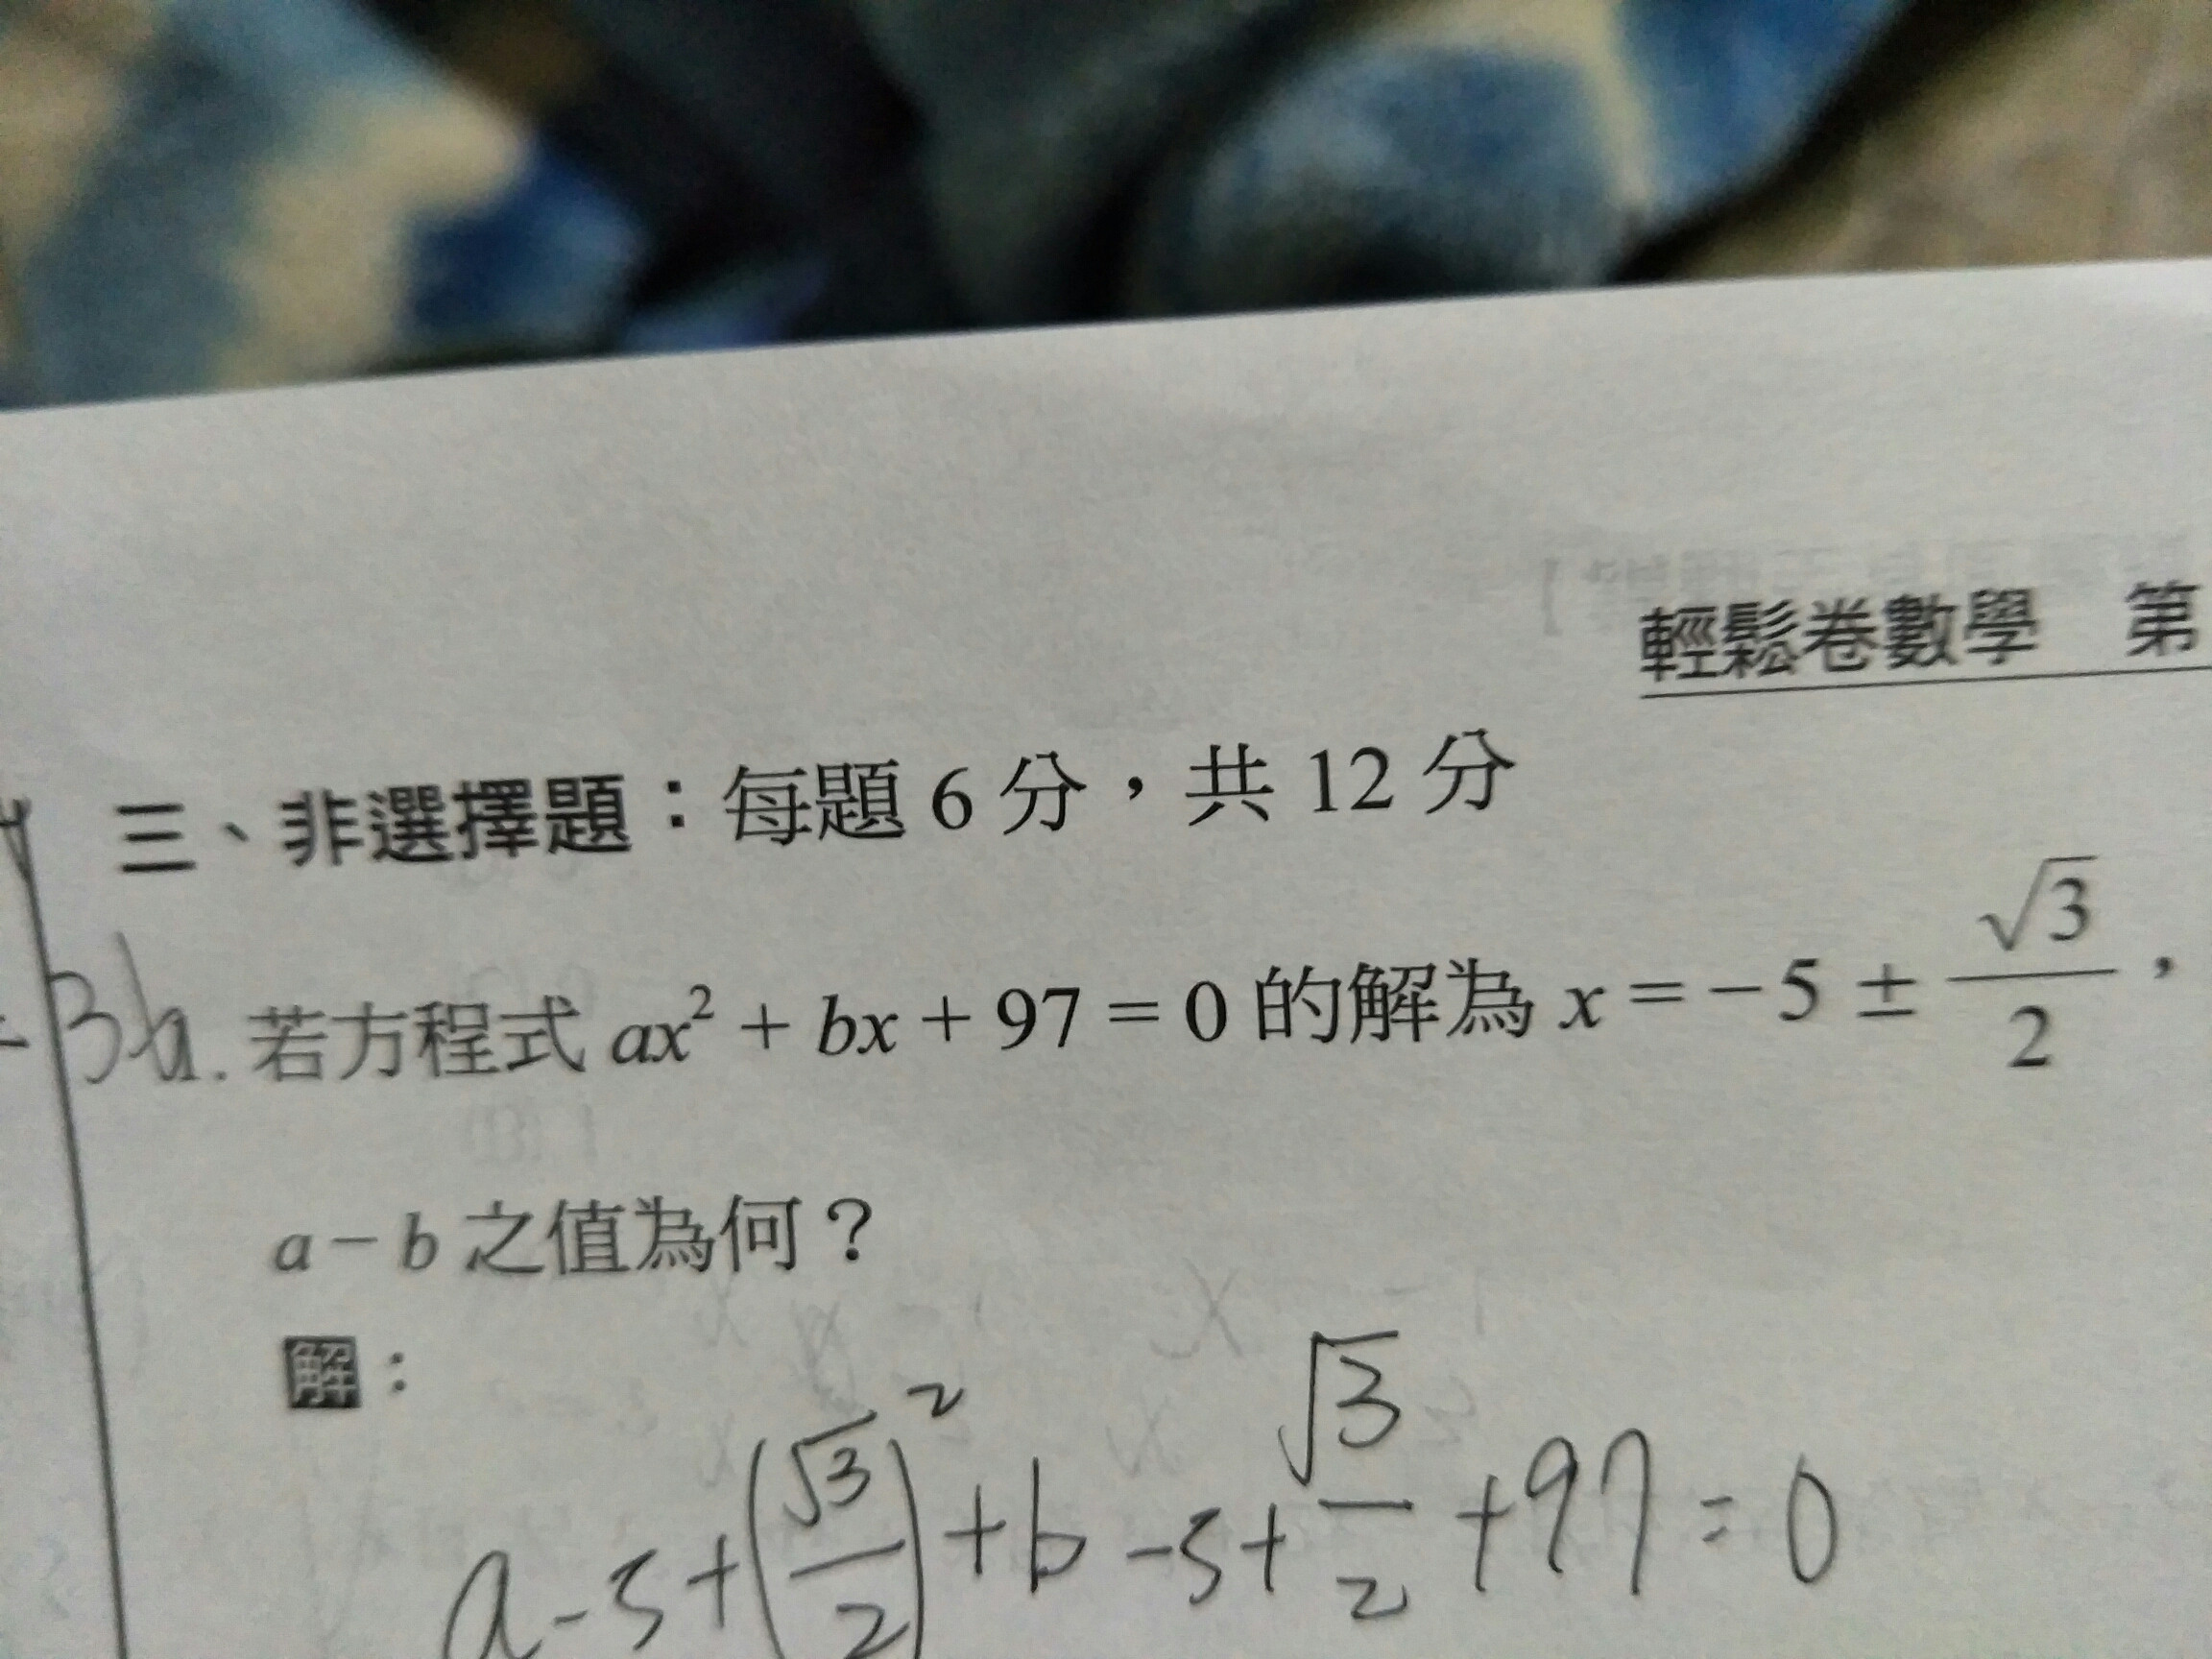 輕鬆卷數學 第
三、非選擇題：每題 6 分，共 12 分
若方程式 ax² + bx + 97 = 0 的解為 x = −5 ± √3/2，
a − b 之值為何？
解：
a-5+(√3/2)²+b-5+√3/2+97=0